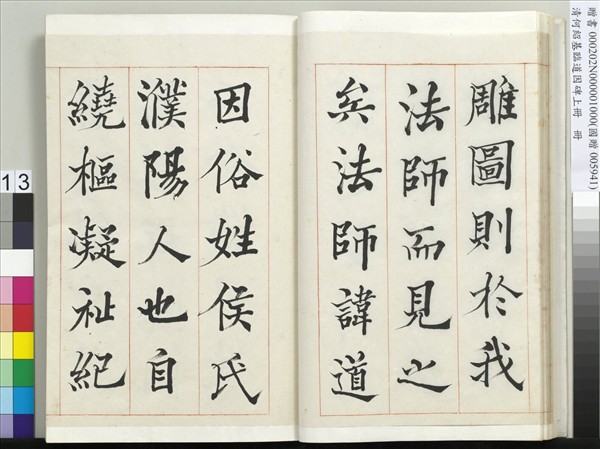 雕圖則於我
法師而見之
矣法師諱道
因俗姓侯氏
濮陽人也自
繞樞凝祉紀
贈書 000202N000001000(國贈 005941)
清何紹基臨道因碑上冊 冊
13